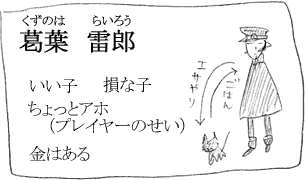 くずのは　らいろう
葛葉　雷郎
いい子　損な子
ちょっとアホ
（プレイヤーのせい）
金はある
エサやり
ごはん